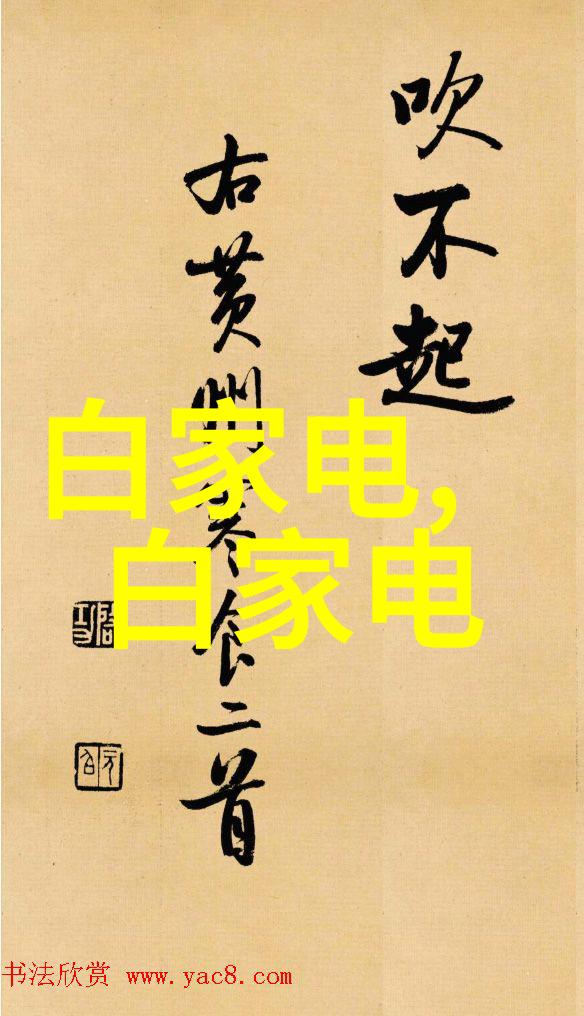 吹不起
右黄州寒食二首
白家电,
白家电
启功
元白
书法欣赏 www.yac8.com